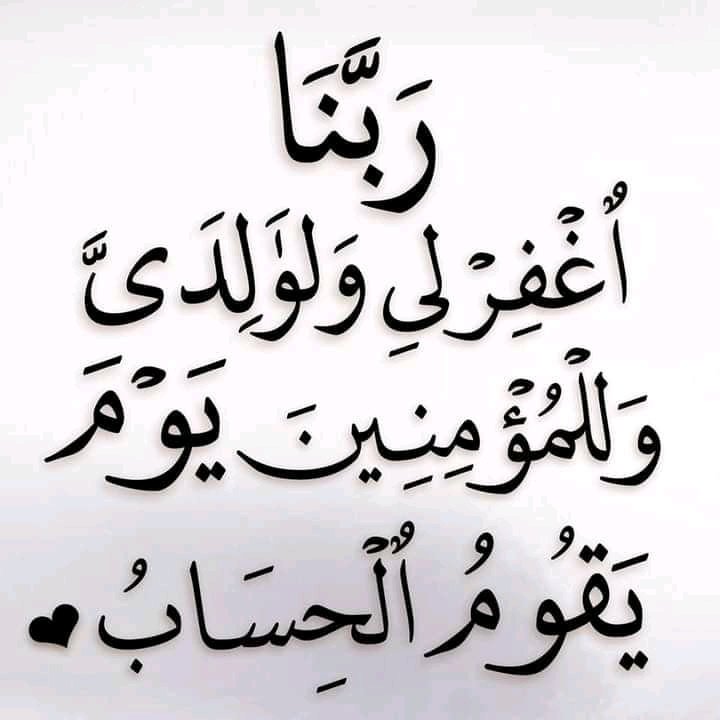 رَبَّنَا
ٱغْفِرْ لِي وَلِوَٰلِدَىَّ
وَلِلْمُؤْمِنِينَ يَوْمَ
يَقُومُ ٱلْحِسَابُ